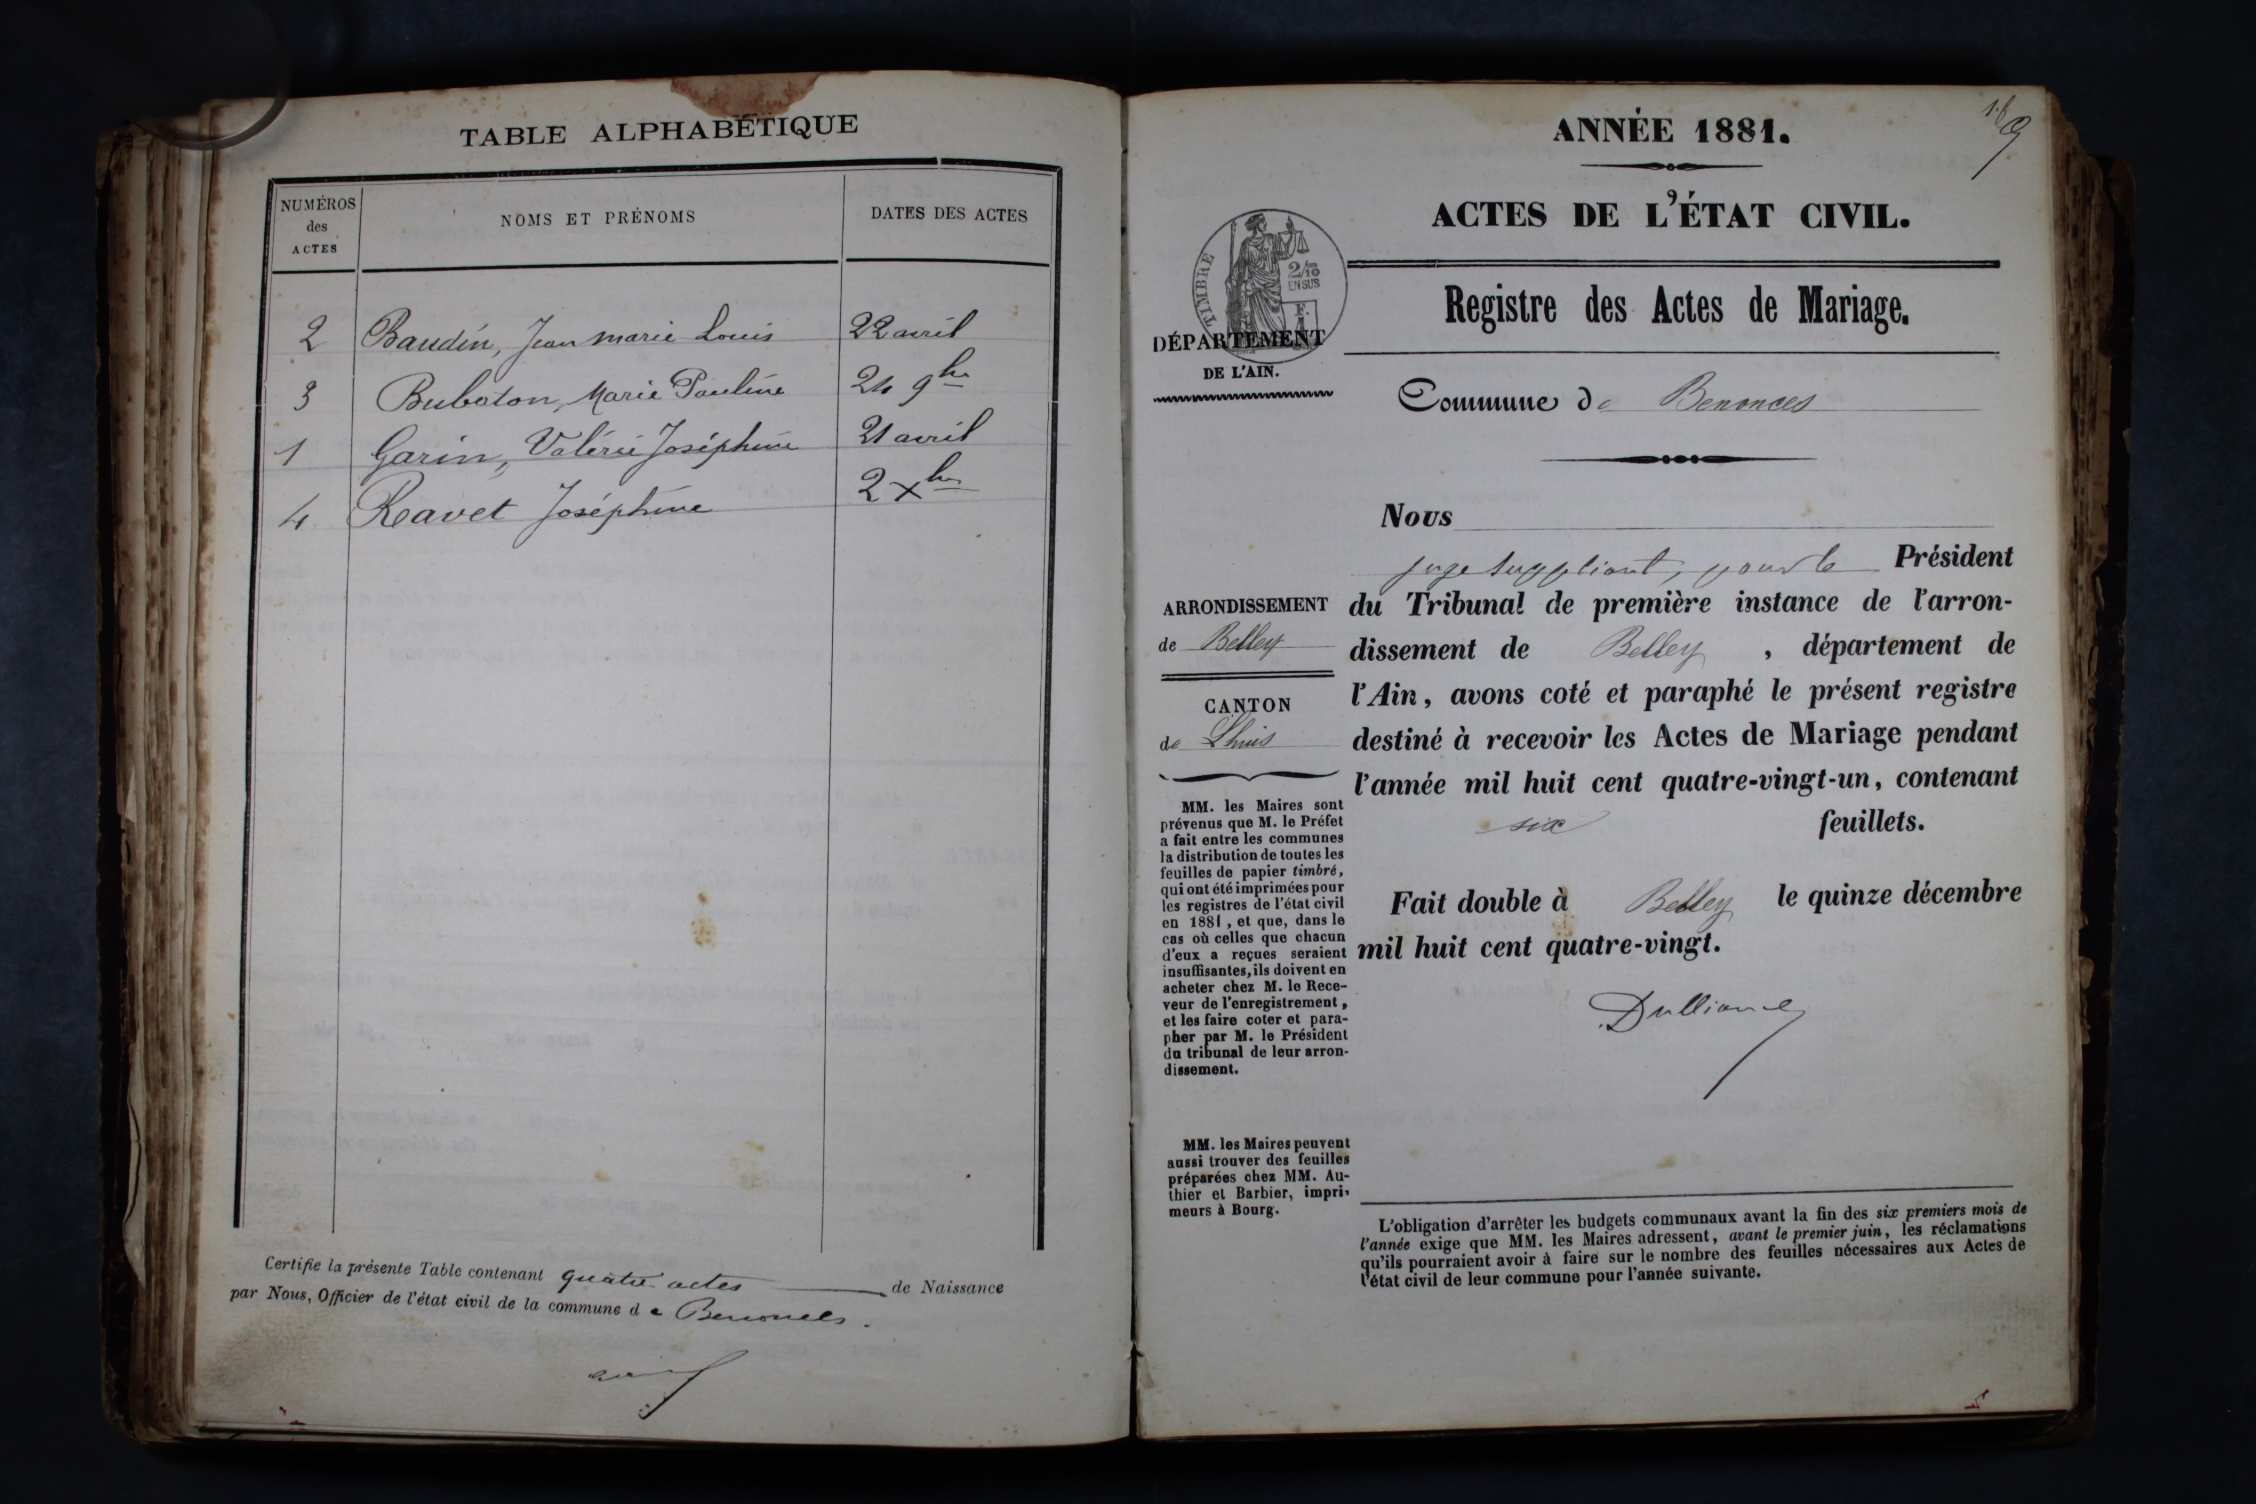 TABLE ALPHABÉTIQUE
NUMÉROS
des
ACTES
NOMS ET PRÉNOMS
DATES DES ACTES
2 Baudin, Jean marie Louis 22 avril
3 Buboton, Marie Pauline 24 9bre
1 Garin, Valérie Joséphine 21 avril
4 Ravet Joséphine 2 Xbre
Certifie la présente Table contenant quatre actes de Naissance
par Nous, Officier de l'état civil de la commune de Benonces.
189
ANNÉE 1881.
ACTES DE L'ÉTAT CIVIL.
TIMBRE
2/10
EN SUS
F.
1
DÉPARTEMENT
DE L'AIN.
Registre des Actes de Mariage.
Commune de Benonces
Nous
juge suppléant, pour le Président
du Tribunal de première instance de l'arron-
dissement de Belley, département de
l'Ain, avons coté et paraphé le présent registre
destiné à recevoir les Actes de Mariage pendant
l'année mil huit cent quatre-vingt-un, contenant
six feuillets.
Fait double à Belley le quinze décembre
mil huit cent quatre-vingt.
ARRONDISSEMENT
de Belley
CANTON
de Lhuis
MM. les Maires sont
prévenus que M. le Préfet
a fait entre les communes
la distribution de toutes les
feuilles de papier timbré,
qui ont été imprimées pour
les registres de l'état civil
en 1881, et que, dans le
cas où celles que chacun
d'eux a reçues seraient
insuffisantes, ils doivent en
acheter chez M. le Rece-
veur de l'enregistrement,
et les faire coter et para-
pher par M. le Président
du tribunal de leur arron-
dissement.
MM. les Maires peuvent
aussi trouver des feuilles
préparées chez MM. Au-
thier et Barbier, impri-
meurs à Bourg.
L'obligation d'arrêter les budgets communaux avant la fin des six premiers mois de
l'année exige que MM. les Maires adressent, avant le premier juin, les réclamations
qu'ils pourraient avoir à faire sur le nombre des feuilles nécessaires aux Actes de
l'état civil de leur commune pour l'année suivante.